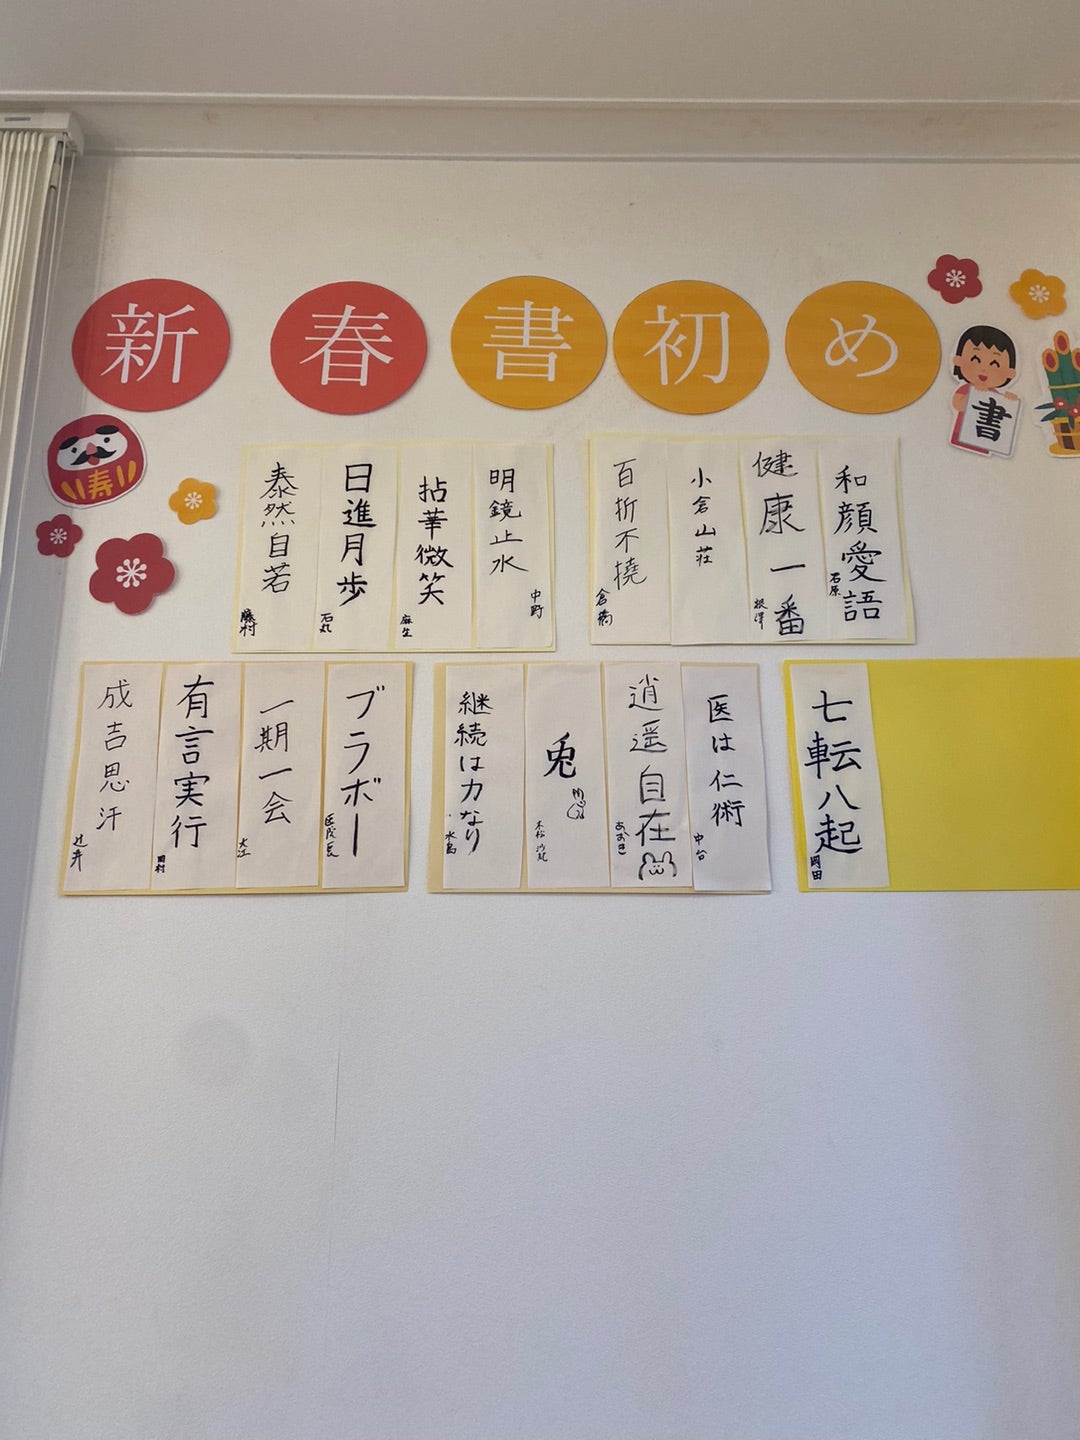 新春書初め
書
寿
和顔愛語
石原
健康一番
根澤
小倉山荘
百折不撓
倉橋
明鏡止水
中野
拈華微笑
麻生
日進月歩
石丸
泰然自若
藤村
七転八起
岡田
医は仁術
中台
逍遥自在
あおき
兎
継続は力なり
水島
ブラボー
一期一会
大江
有言実行
田村
成吉思汗
辻井